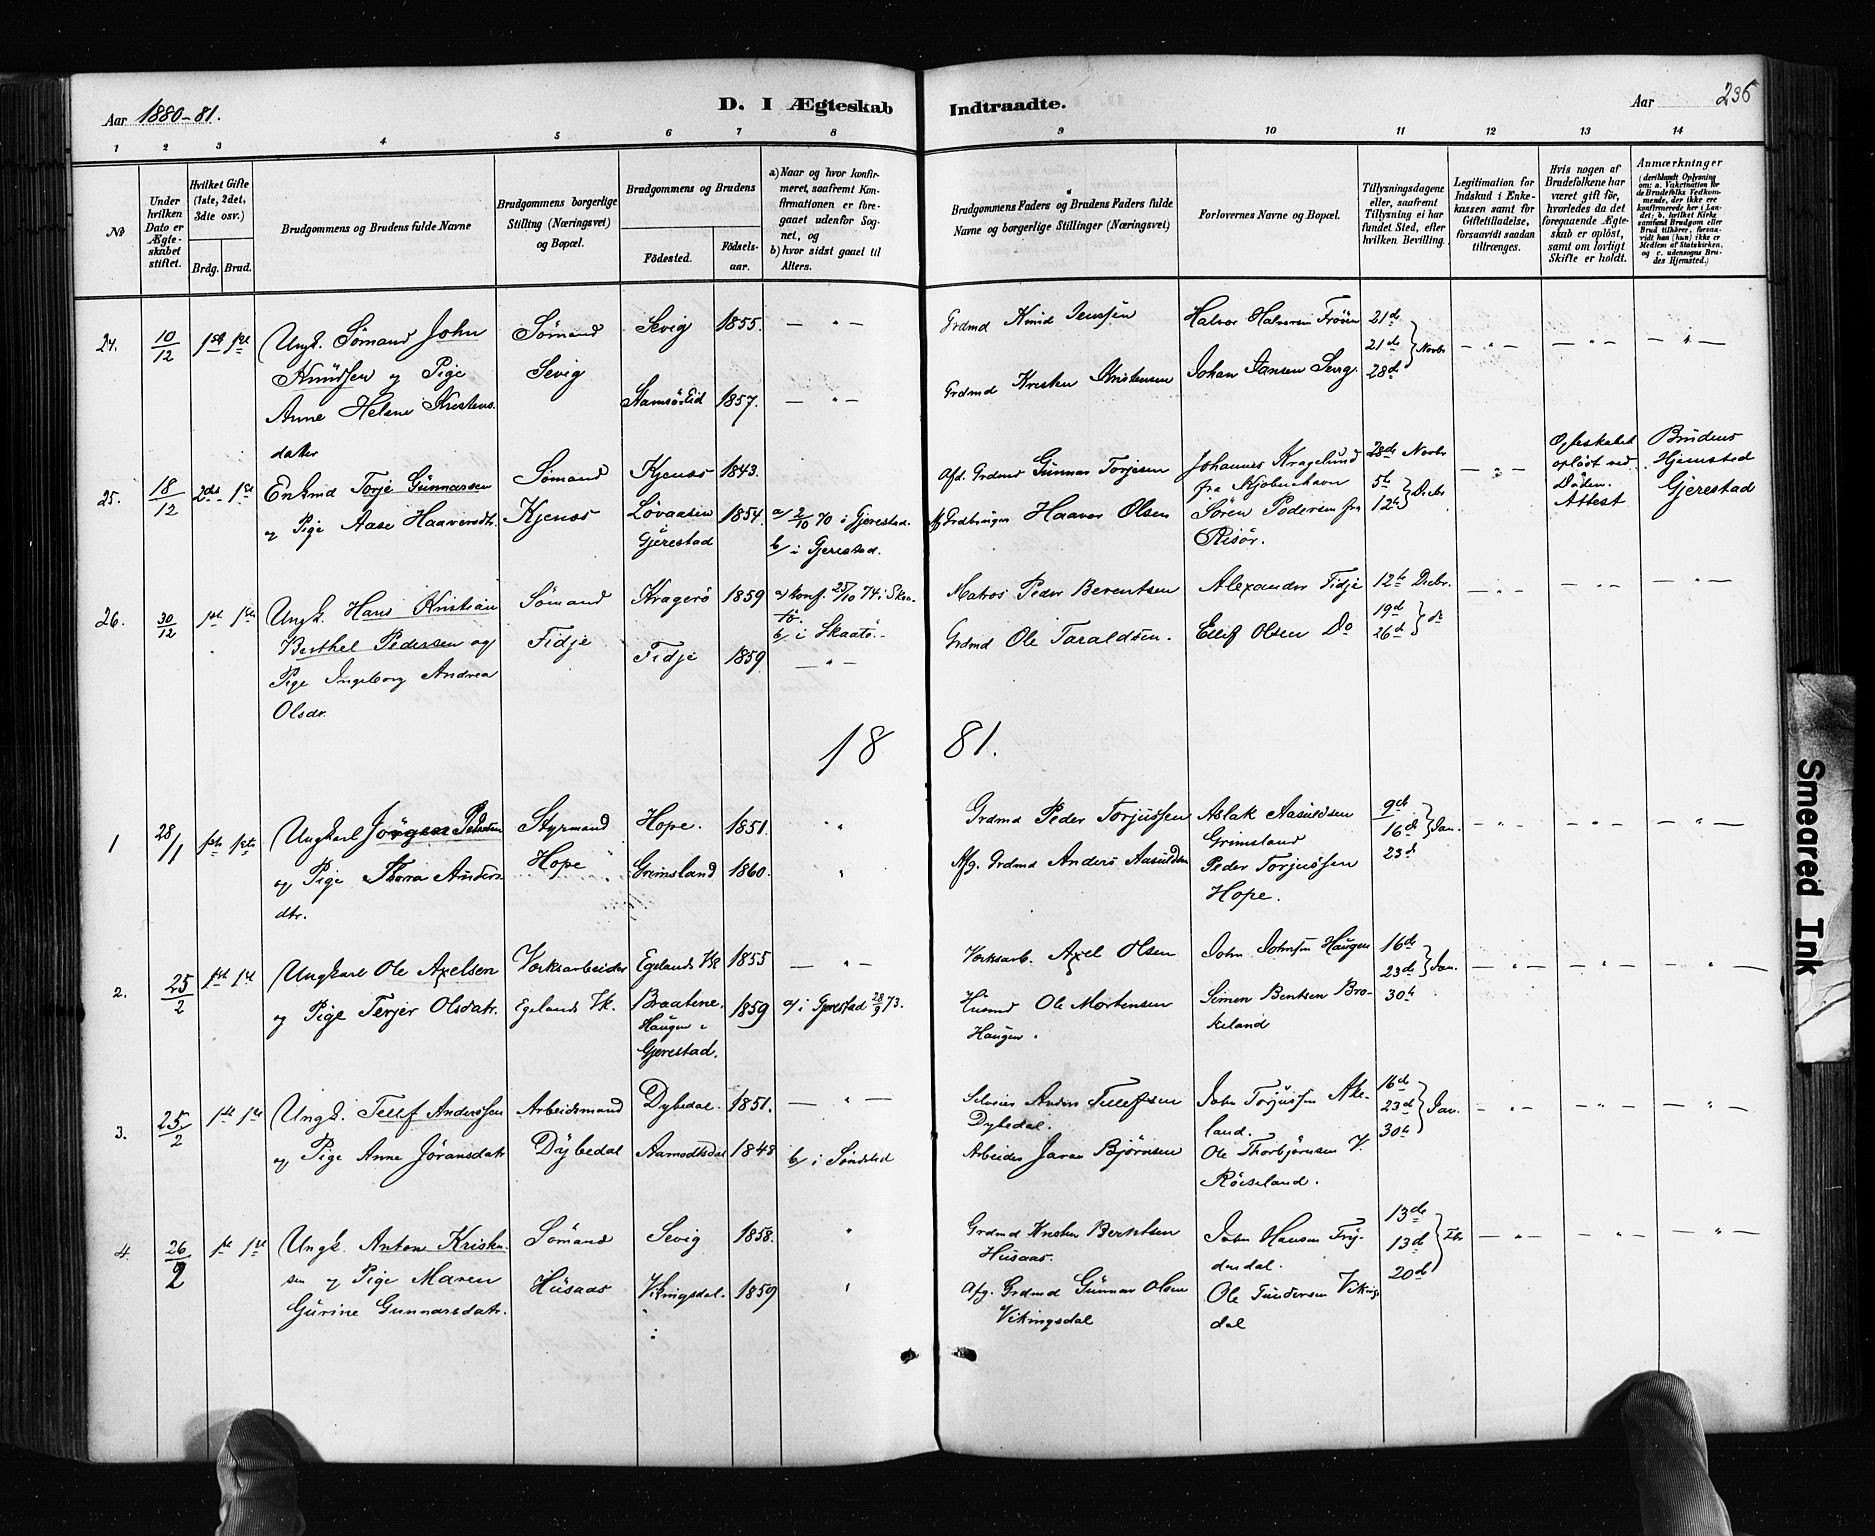 Aar 1880-81.
D. I Ægteskab Indtraadte.
Aar 236
1 2 3 4 5 6 7 8 9 10 11 12 13 14
No
Under hvilken Dato er Ægteskabet stiftet.
Hvilket Gifte (1ste, 2det, 3die osv.)
Brdg. Brud.
Brudgommens og Brudens fulde Navne
Brudgommens borgerlige Stilling (Næringsvei) og Bopæl.
Brudgommens og Brudens
Födested.
Födselsaar.
a) Naar og hvor konfirmeret, saafremt Konfirmationen er foregaaet udenfor Sognet, og
b) hvor sidst gaaet til Alters.
Brudgommens Faders og Brudens Faders fulde Navne og borgerlige Stillinger (Næringsvei)
Forlovernes Navne og Bopæl.
Tillysningsdagene eller, saafremt Tillysning ei har fundet Sted, efter hvilken Bevilling.
Legitimation for Indskud i Enkekassen samt for Giftetilladelse, forsaavidt saadan tiltrænges.
Hvis nogen af Brudefolkene har været gift för, hvorledes da det foregaaende Ægteskab er oplöst, samt om lovligt Skifte er holdt.
Anmærkninger (deriblandt Oplysning om: a. Vakcination for de Brudefolks Vedkommende, der ikke ere konfirmerede her i Landet; b. hvilket Kirkesamfund Brudgom eller Brud tilhörer, forsaavidt han (hun) ikke er Medlem af Statskirken, og c. udensogns Brudes Hjemsted.)
24. 10/12 1ste 1ste Ungk. Sømand John Sømand Sevig 1855. — " — Grdmd Knud Jenssen Halvor Halvorsen Fröün 21de
Knudsen og Pige Sevig 21de Novbr
Anne Helene Kristens Stamsöeid 1857. — " — Grdmd Kristen Kristensen Johan Jansen Sevg. 28de
dater
25. 18/12 2den 1ste Enkmd Torje Gunnarsen Sømand Kjenas 1843. Afd. Grdmd Gunnar Torjesen Johannes Kragelund 28de Novbr Ægteskabet Brudens
fra Kjøbenhavn oplöst ved Hjemsted
og Pige Aase Haaversdtr. Kjenas Lövaasen 1854. a/ 2/10 70 i Gjerestad. Haaver Olsen Sören Pedersen fra 5te 12te Decbr Döden. Gjerestad
Gjerestad b/ i Gjerestad. Risör. Attest
26. 30/12 1ste 1ste Ungk. Hans Kristian Sømand Kragerö 1859 a/ konf. 25/10 74 i Skaa- Matros Peder Berentsen Alexander Fidje 12te Decbr.
Berthel Pedersen og Fidje tö. b/ i Skaatö. 19de
Pige Ingeborg Andrea Fidje 1859 — " — Grdmd Ole Taraldsen. Ellef Olsen Do 26de do
Olsdr.
1881.
1 28/1 1ste 1ste Ungkarl Jörgen Pedersen Styrmand Hope. 1851. " Grdmd Peder Torjussen Aslak Aasuldsen 9de
Grimsland 16de Jan.
og Pige Thorra Anders Hope Grimsland 1860. " Afg. Grdmd Anders Aasuldsen Peder Torjussen 23de
dtr. Hope.
2. 25/2 1ste 1ste Ungkarl Ole Axelsen Verksarbeider Egelands Vk 1855 — " — Verksarb. Axel Olsen John Johnsen Haugen 16de
23de Jan.
og Pige Terjer Olsdatr. Egelands Vk. Braatene 1859 a/ i Gjerestad 28/9 73. Husmd Ole Mortensen Simen Bentsen Bro- 30te
Haugen i Haugen. keland
Gjerestad.
3. 25/2 1ste 1ste Ungk. Tellef Anderssen Arbeidsmand Dybedal. 1851. — " — Selveier Anders Tellefsen John Torjussen Ake- 16de
Dybedal. land. 23de Jan.
og Pige Anne Jöransdatr. Dybedal Aamodtsdal 1848 b/ i Söndeled Arbeider Jöran Björnsen Ole Thorbjörnsen V. 30te
Röiseland.
4. 26/2 1ste 1ste Ungk. Anton Kristen- Sömand Sevig 1858. " Grdmd Kresten Berthtsen John Hansen Fry- 13de
Husaas. dendal. 13de Fbr
sen og Pige Maren Husaas Vikingsdal. 1859 " Afg. Grdmd Gunnar Olsen Ole Gundersen Vikings 20de
Gurine Gunnarsdatr. Vikingsdal dal
Smeared Ink